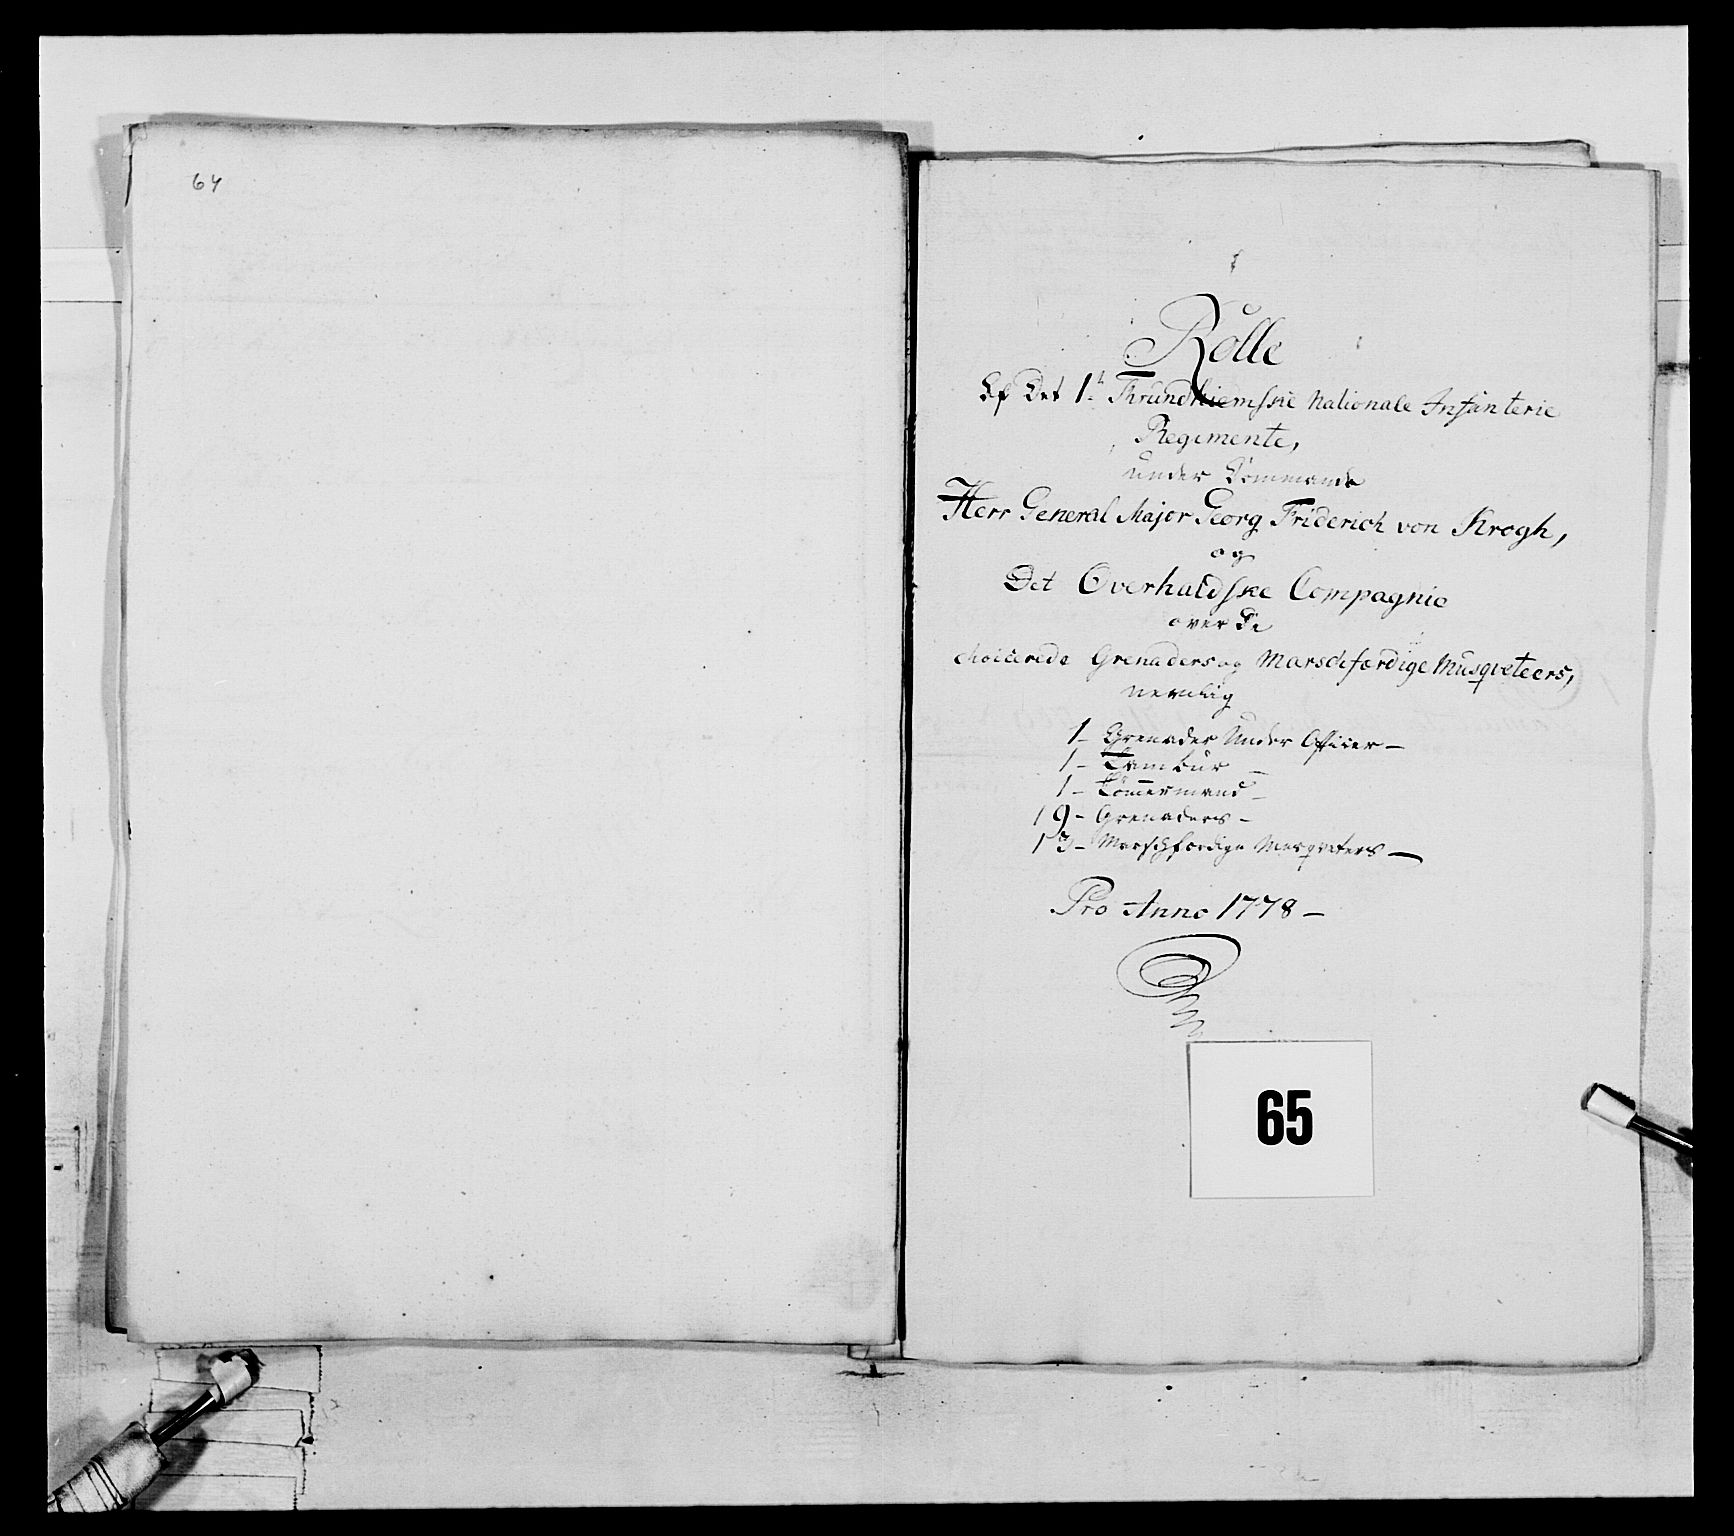 64
Rolle
Af Det 1t Thrundhiemske Nationale Infanterie
Regimente,
under Commando
Herr General Major Georg Friderich von Krogh,
og
Det Overhaldske Compagnie
over De
choicerede Grenaders og Marschfærdige Musqveteers,
nemlig
1 - Grenader Under Officer -
1 - Tambur -
1 - Tömmermand -
19 - Grenaders -
13 - Marschfærdige Musqveters -
Pro Anno 1778 -
65